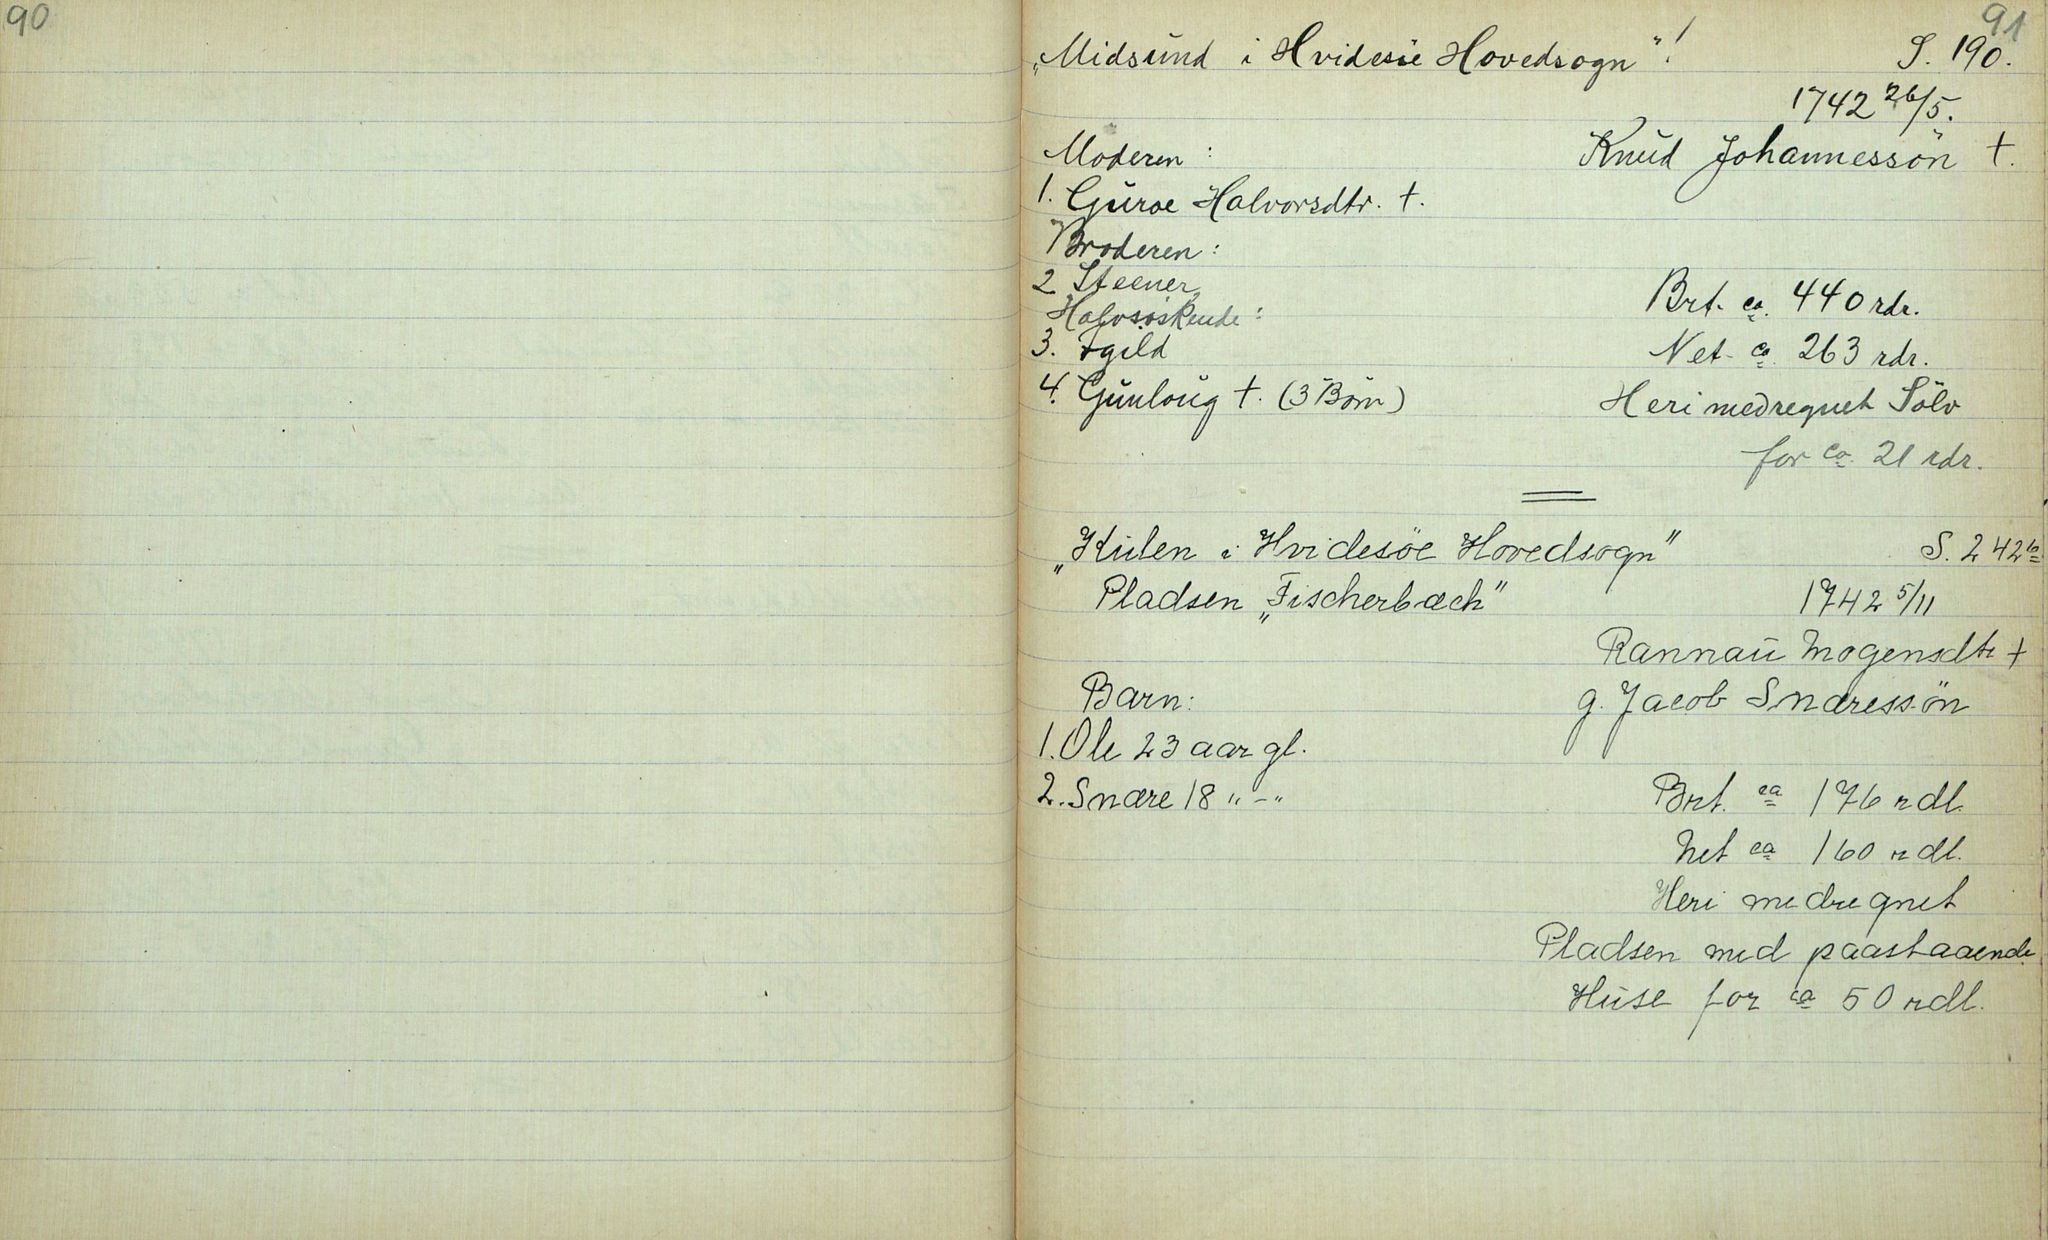 90
91
"Midsund i Hvidesöe Hovedsogn"! S. 190.
1742 26/5.
Moderen: Knud Johannessön †.
1. Guroe Halvorsdtr. †.
Broderen:
2 Steener
Halvsöskende: Brt. ca. 440 rdr.
3. Egild Net. ca. 263 rdr.
4. Gunloug †. (3 Börn) Heri medregnet Sölv
for ca. 21 rdr.
"Kulen i Hvidesöe Hovedsogn" S. 242 b
Pladsen "Fischerbæch" 1742 5/11
Rannau Mogensdtr †
Barn: g. Jacob Snaressön
1. Ole 23 aar gl.
2. Snare 18 " - " Brt. ca 176 rdl.
Net ca 160 rdl.
Heri medregnet
Pladsen med paastaaende
Huse for ca 50 rdl.